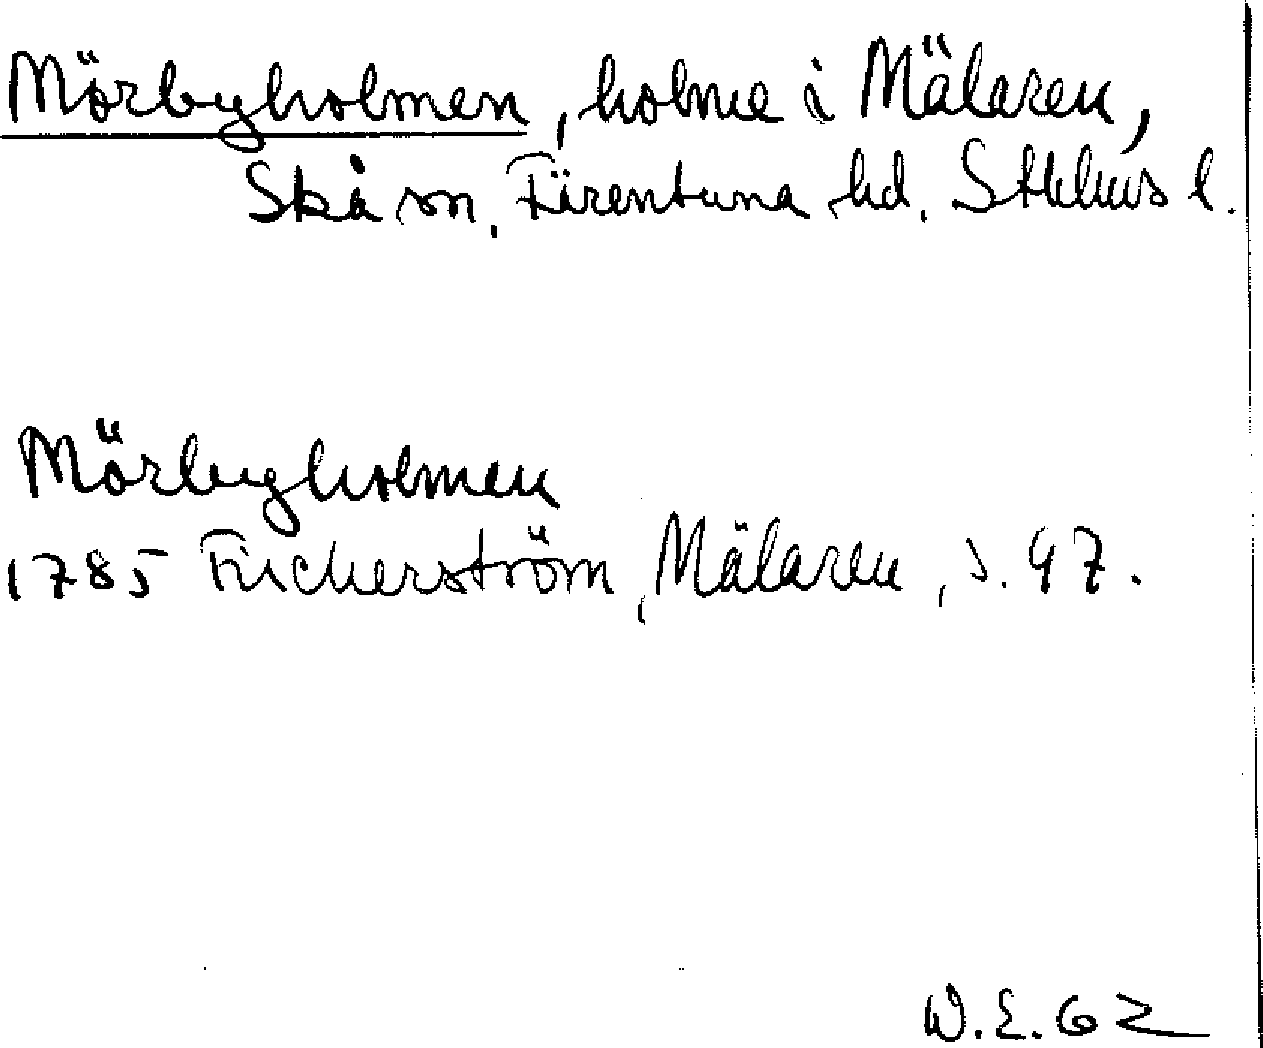 Mörbyholmen, holme i Mälaren,
Skå sn, Färentuna hd, Sthlms l.
Mörbyholmen
1785 Fischerström, Mälaren, s. 97.
W.E. 62